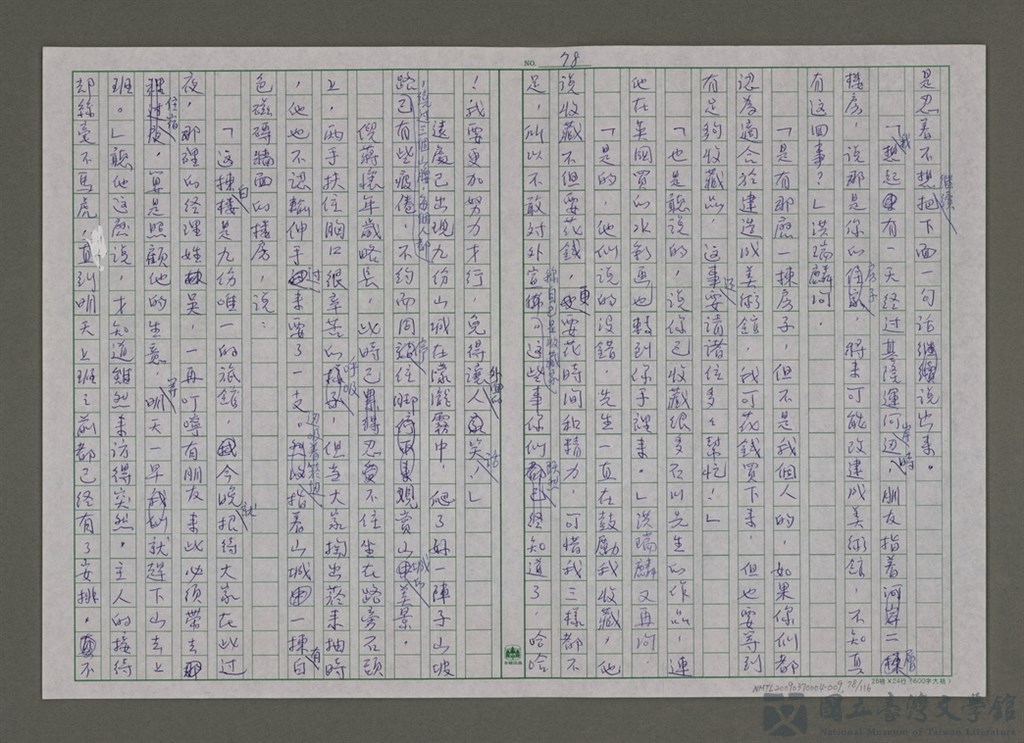 NO. 78
是忍着不想把下面一句話繼續說出來。
「我想起有一天经过基隆運河边岸時，朋友指着河岸二層
樓房，说那是你的房子，將来可能改建成美術館，不知真
有這回事？」洪瑞麟问。
「是有那麼一棟房子，但不是我個人的，如果你们都
認為適合於建造成美術館，我可花錢買下来，但也要等到
有足夠收藏品，這事还要請諸位多多幫忙！」
「也是聽說的，说你已收藏很多石川先生的作品，連
他在英國買的水彩画也轉到你手裡来。」洪瑞麟又再问。
「是的，他们说的没錯，先生一直在鼓勵我收藏，他
说收藏不但要花錢，更要花時间和精力，可惜我三樣都不
足，所以不敢对外宣稱自己是收藏家，這些事你们既然已经知道了，哈哈
！我要更加努力才行，免得讓外界人笑話！」
遠處已出現九份山城在濛瀧霧中，爬了好一陣子山坡
路，已有些疲倦，不约而同停住脚，观賞山城的美景。
倪蒋懷年歲略長，此時已忍不住坐在路旁石頭
上，两手扶住胸口很辛苦的呼吸，但当大家掏出菸来抽時
，他也不認輸伸手过来要了一支。边吸着菸边指着山城有一棟白
色磁磚牆面的樓房，说：
「這棟白樓是九份唯一的旅館，今晚就招待大家在此过
夜，那裡的经理姓吳，一再叮嚀有朋友来此必須帶去
住宿，算是照顧他的生意，等明天一早我们就趕下山去上
班。」聽他这麽说，才知道雖然来访得突然，主人的接待
却絲毫不馬虎，直到明天上班之前都已经有了安排，不
25格×24行（600字大稿）
NMTL20090370004-009_78/116
國立臺灣文學館
National Museum of Taiwan Literature